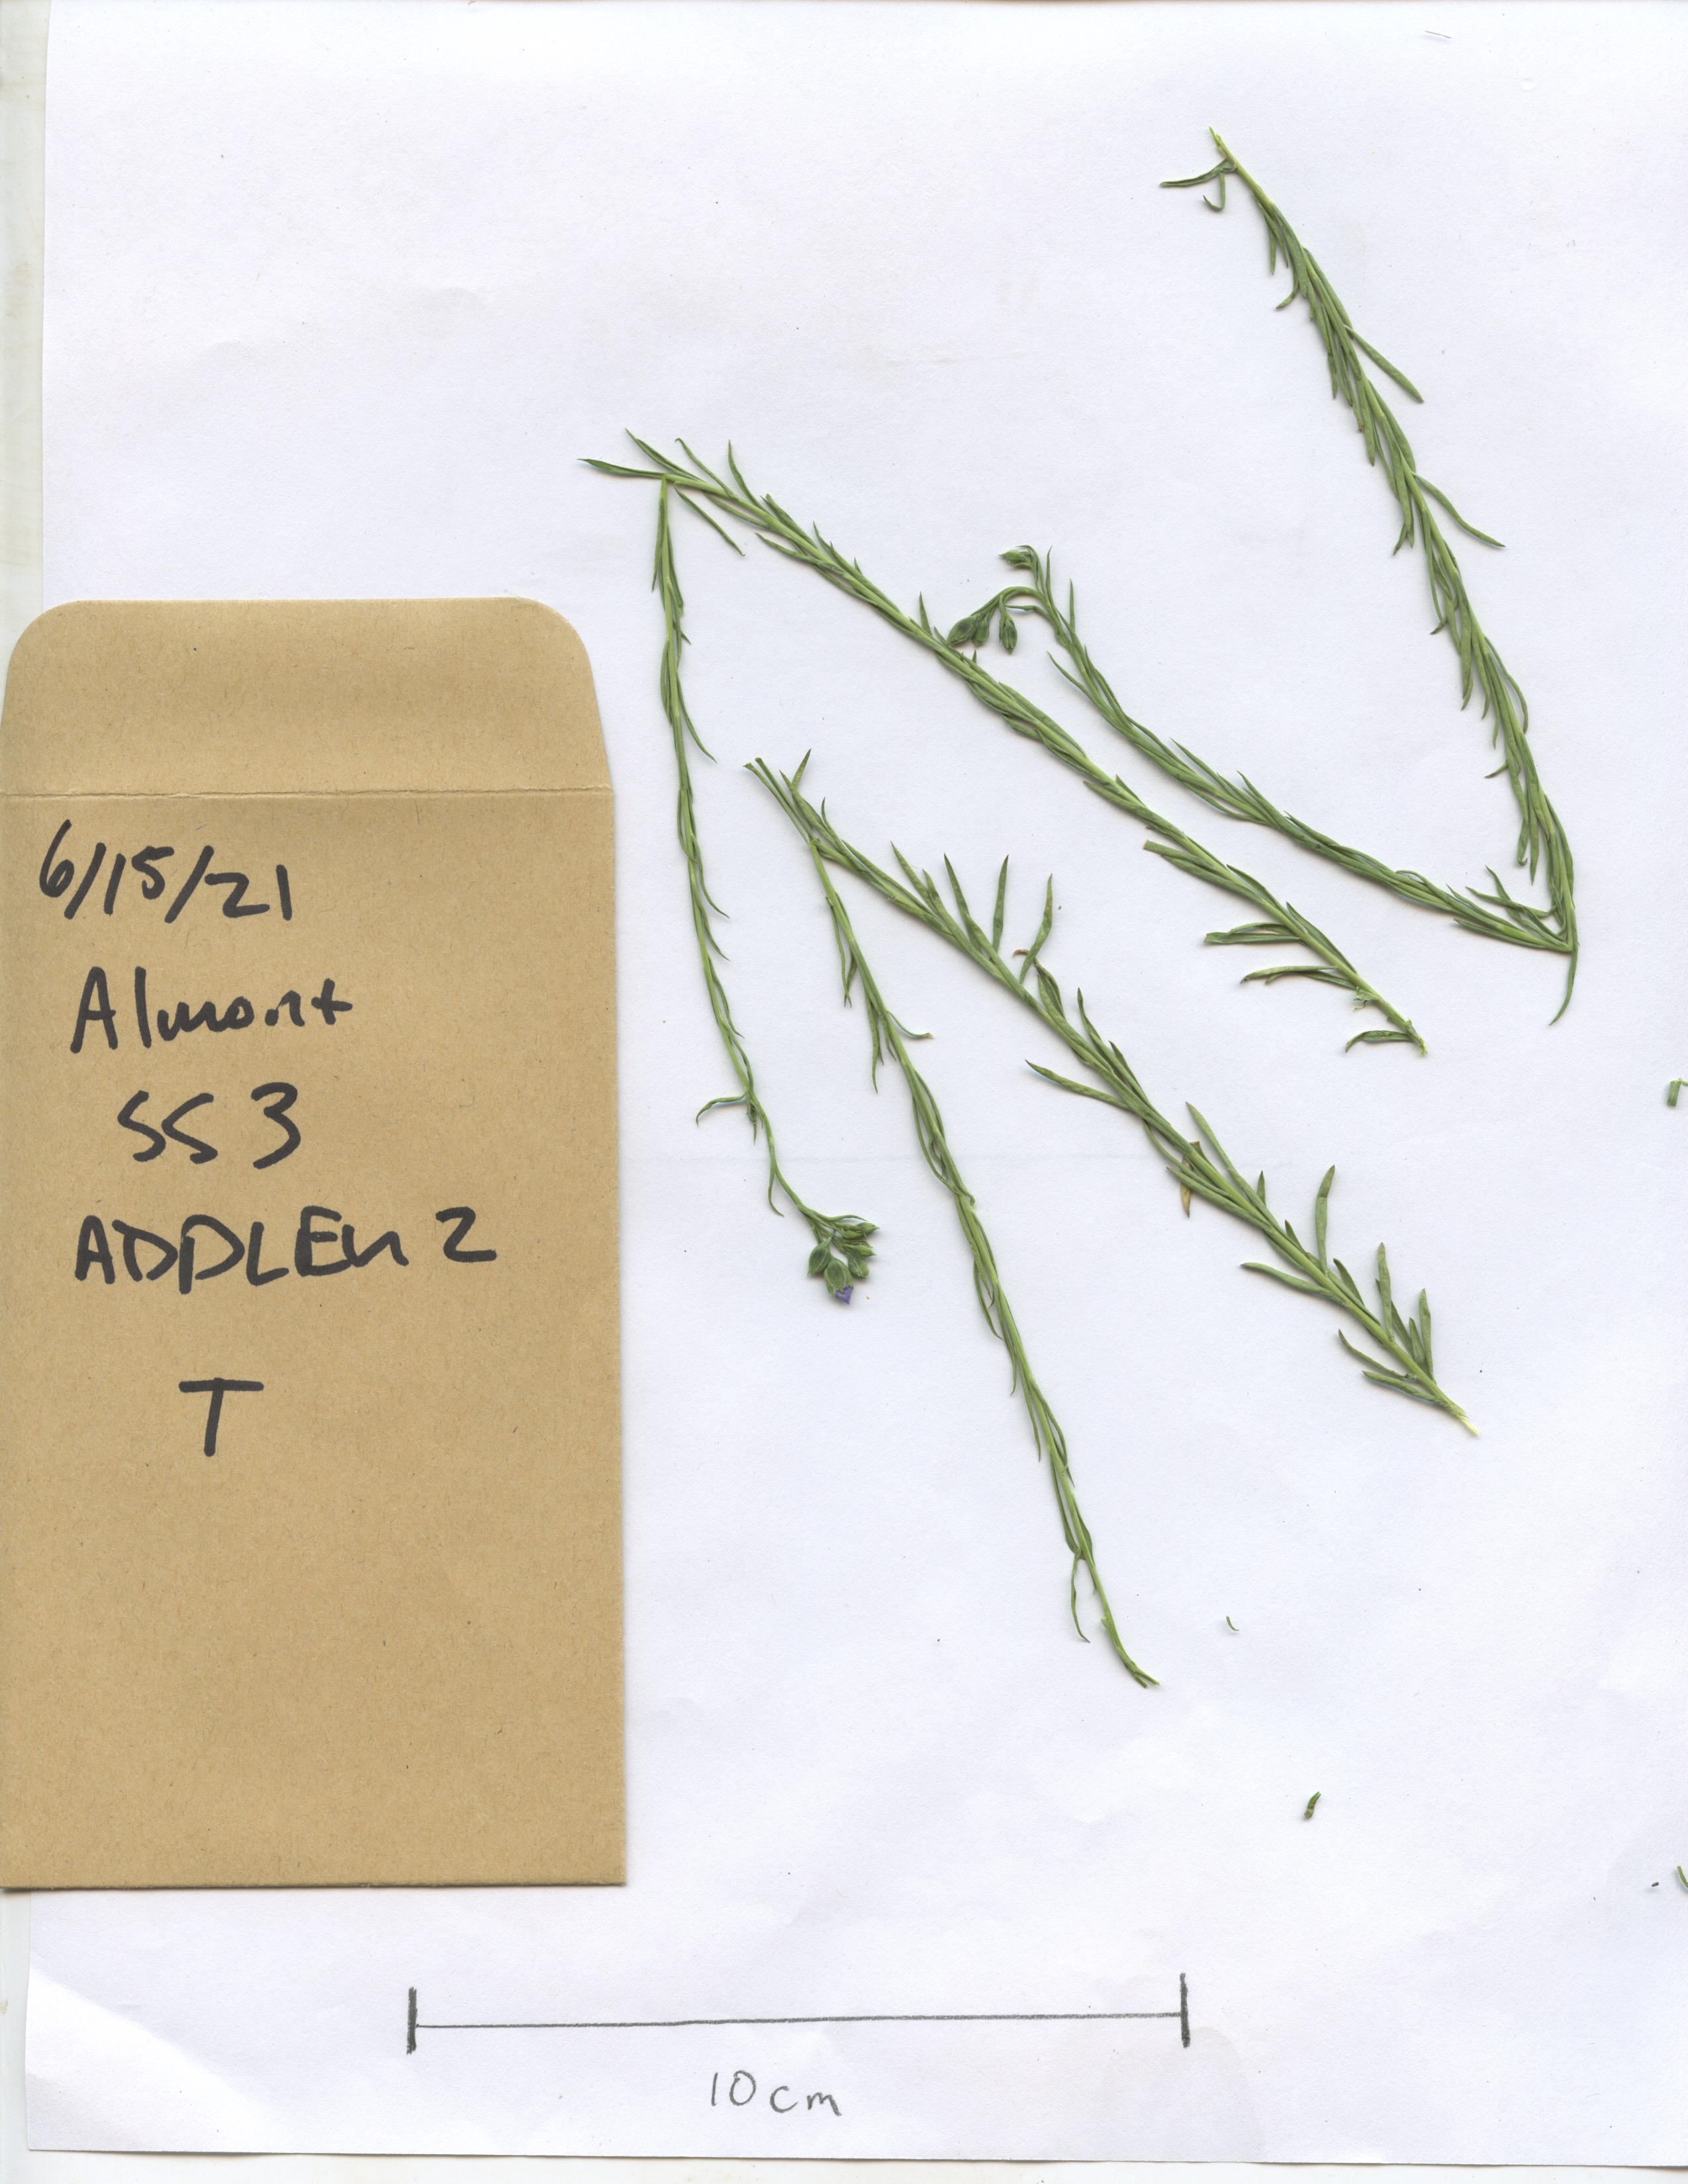 6/15/21
Almont
SS 3
ADDLEn 2
T
10cm